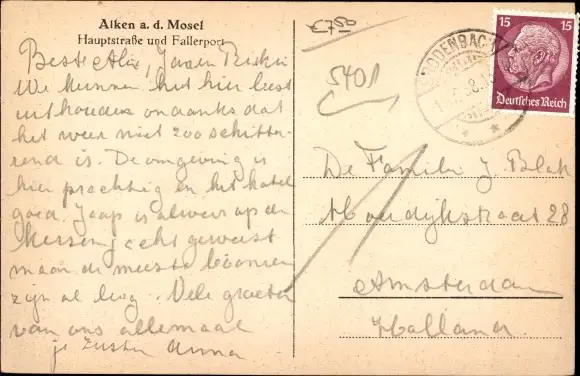 Alken a. d. Mosel
Hauptstraße und Fallerport
Beste Alie, Jaap en Rickie
We kunnen het hier best
uithouden ondanks dat
het weer niet zoo schitte-
rend is. De omgeving is
hier prachtig en het hotel
goed. Jaap is alweer op de
kersenjacht geweest
maar de meeste boomen
zijn al leeg. Vele groeten
van ons allemaal
je zuster Anna
€7.50
5401
BRODENBACH
15 15
Deutsches Reich
De Familie J Blok
Moerdijkstraat 28
Amsterdam
Holland.